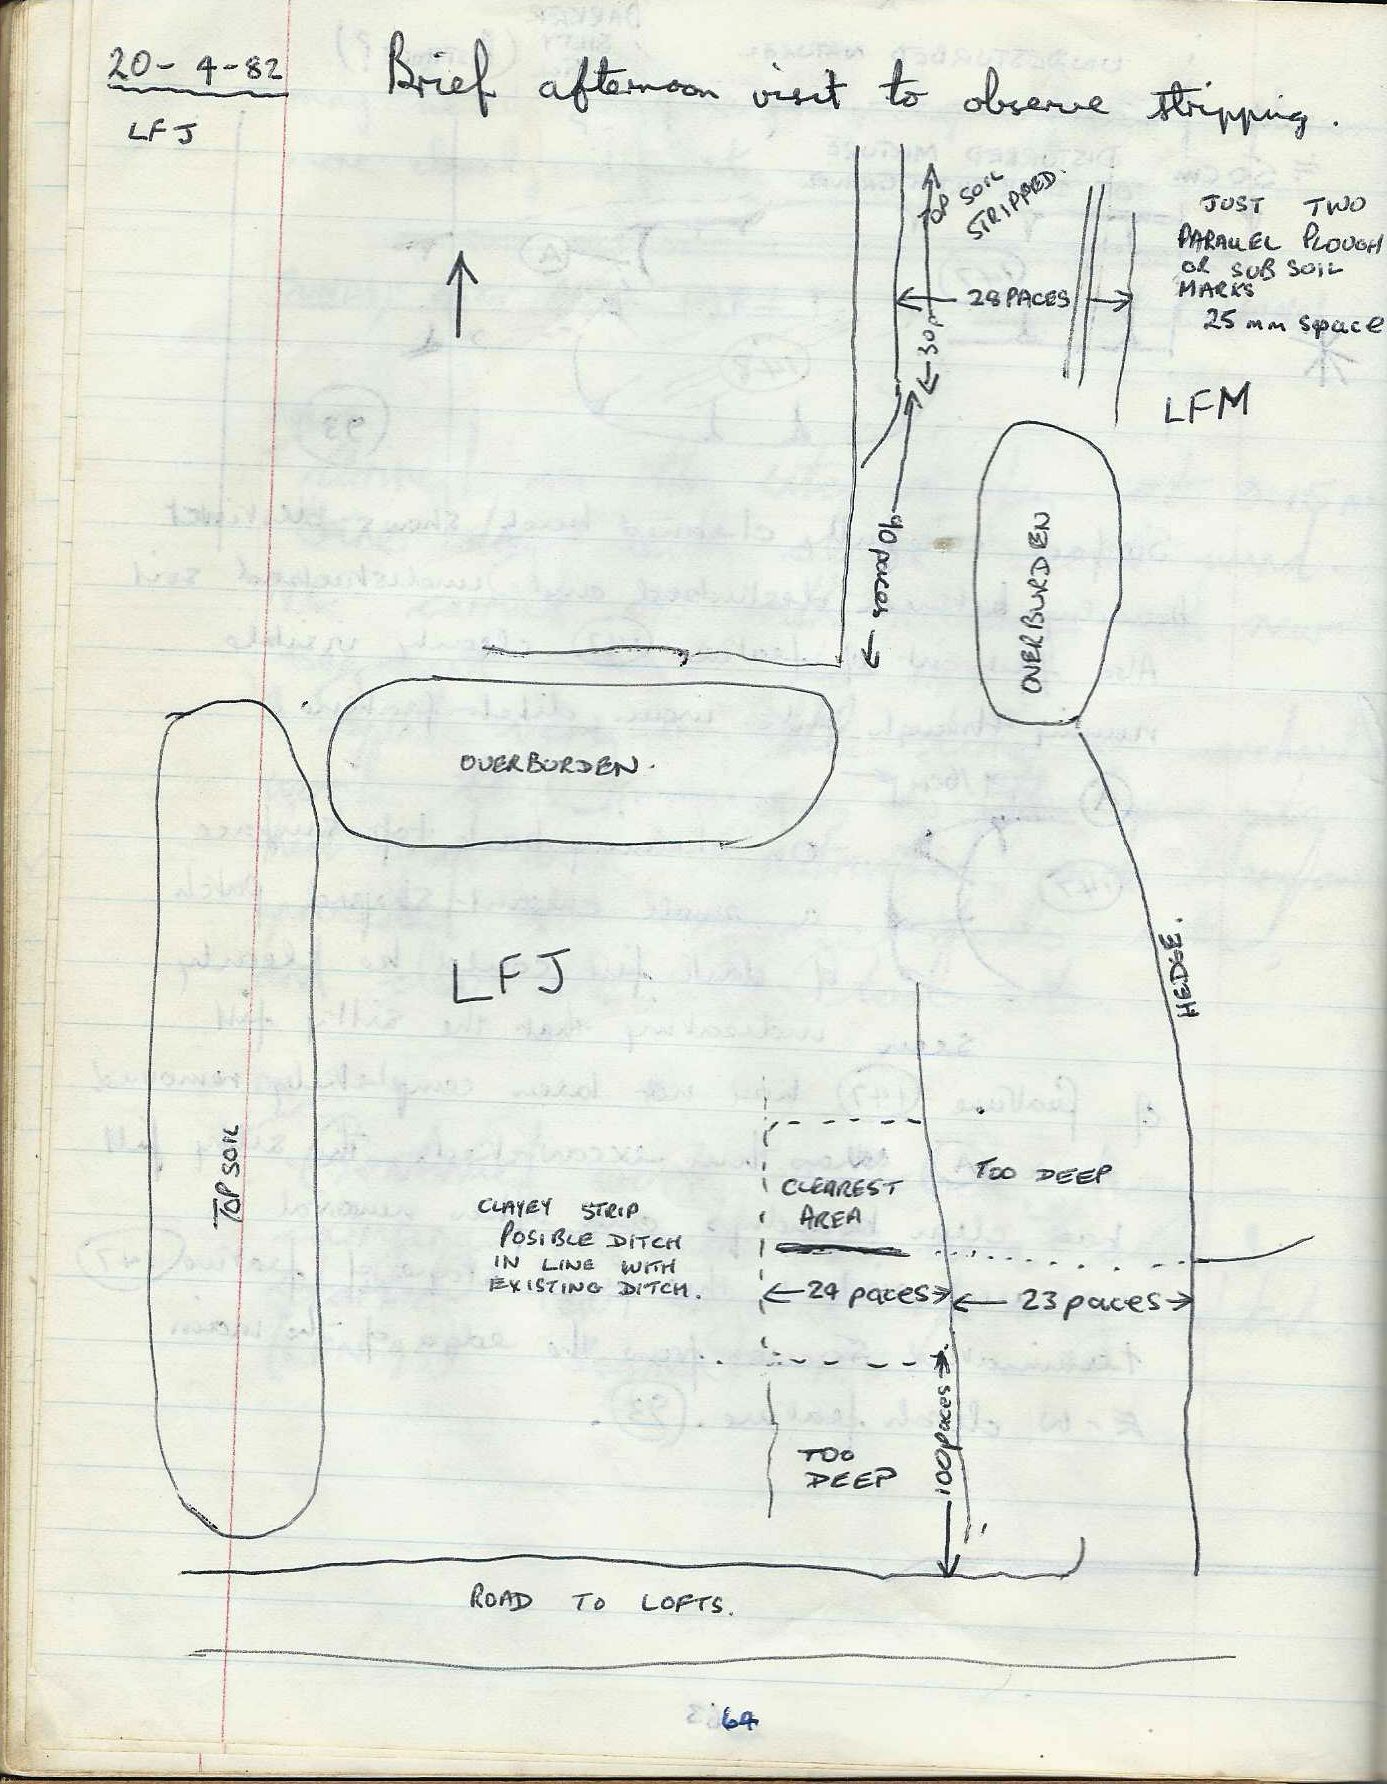 20-4-82
LFJ
Brief afternoon visit to observe stripping.
TOP SOIL
STRIPPED.
JUST TWO
PARALLEL PLOUGH
OR SUB SOIL
MARKS
25 mm space
28 PACES
30p
LFM
40 paces
OVERBURDEN
OVERBURDEN.
HEDGE.
LFJ
TOPSOIL
TOO DEEP
CLEAREST
AREA
CLAYEY STRIP
POSIBLE DITCH
IN LINE WITH
EXISTING DITCH.
24 paces
23 paces
100 paces
TOO
DEEP
ROAD TO LOFTS.
64